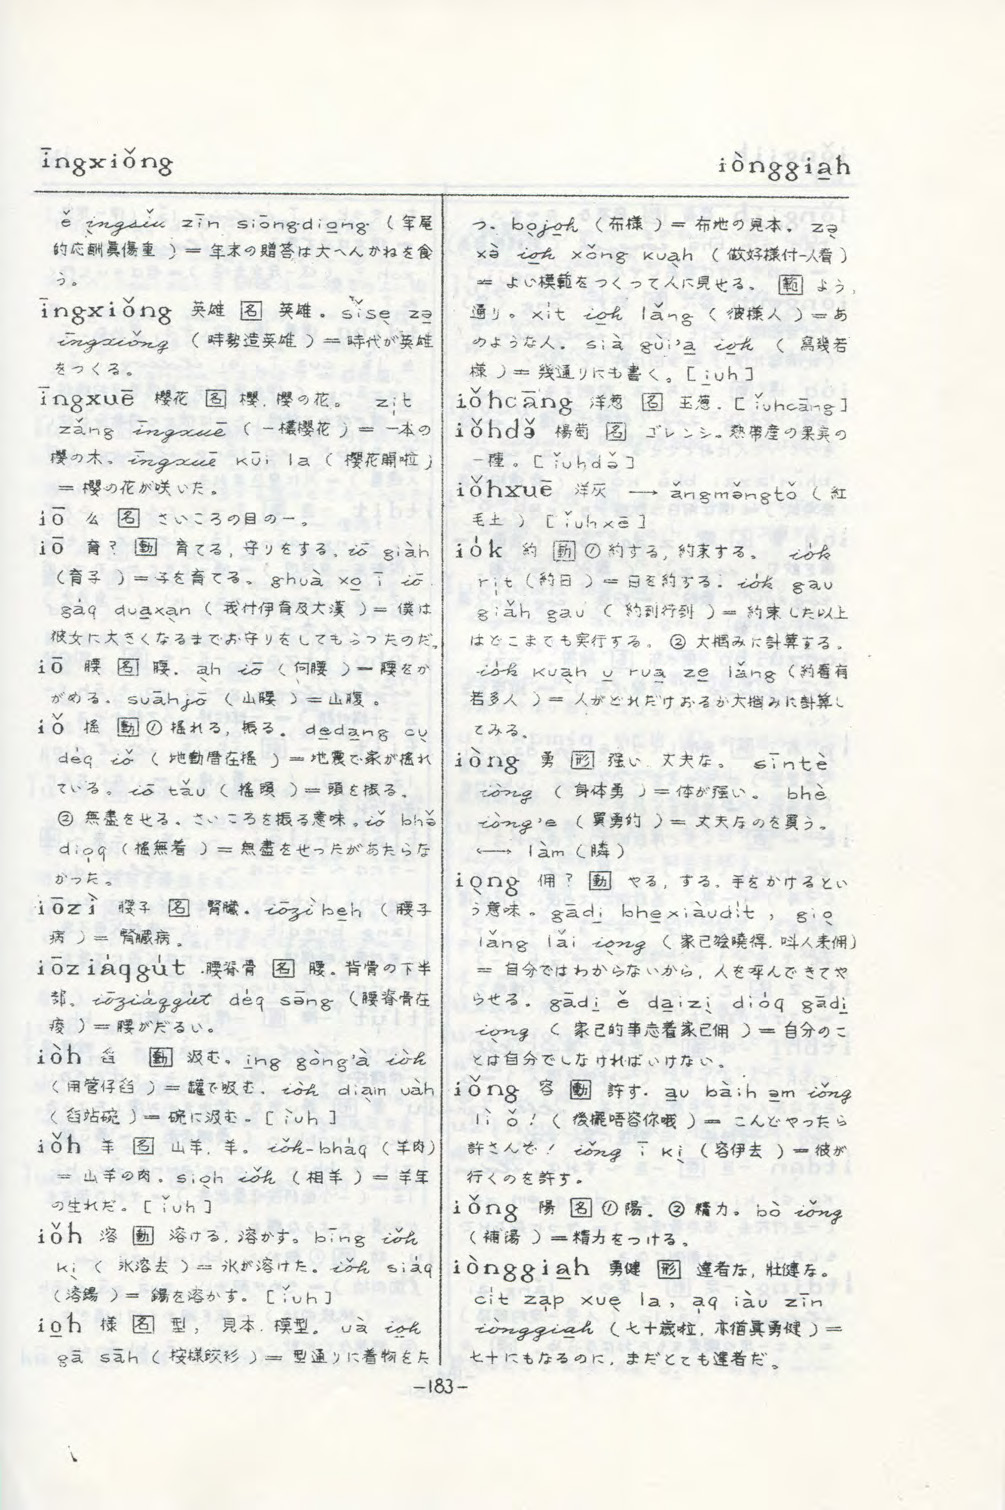 īngxiǒng
iònggia̱h
ě ìngsiu zīn siōngdio̱ng (年尾
的応酬眞傷重 )= 年末の贈答は大へんかねを食
う。
īngxiǒng 英雄 名 英雄。sǐse̱ zə̱
īngxiǒng ( 時勢造英雄 )= 時代が英雄
をつくる。
īngxuē 櫻花 名 櫻, 櫻の花。 zi̍t
zǎng īngxuē ( 一欉櫻花 )= 一本の
櫻の木。īngxuē kūi la ( 櫻花開啦 )
= 櫻の花が咲いた。
iō 么 名 さいころの目の一。
iō 育? 動 育てる, 守りをする。iō giàh
(育子 )= 子を育てる。ghuà xo̱ ī iō
gáq dua̱xa̱n ( 我付伊育及大漢 )= 僕は
彼女に大きくなるまでお守りをしてもらったのだ。
iō 腰 名 腰。a̱h iō ( 向腰 )= 腰をか
がめる。suāhjō ( 山腰 )= 山腹。
iǒ 搖 動 ① 搖れる, 振る。de̱da̱ng cu̱
déq iǒ ( 地動厝在搖 )= 地震で家が搖れ
ている。iō tǎu ( 搖頭 )= 頭を振る。
② 無盡をせる。さいころを振る意味。iǒ bhǒ
dio̍q (搖無着 )= 無盡をせったがあたらな
かった。
iōzì 腰子 名 腎臓。iōzì be̱h ( 腰子
病 )= 腎臓病。
iōziáqgút 腰脊骨 名 腰。背骨の下半
部。iōziáqgút déq sǎng (腰脊骨在
痠 )= 腰がだるい。
iòh 舀 動 汲む。i̱ng gòng'à iòh
(用管仔舀 )= 罐で汲む。iòh dia̱m uàh
(舀站碗 )= 碗に汲む。[ ìuh ]
iǒh 羊 名 山羊, 羊。iǒh-bháq (羊肉)
= 山羊の肉。sio̱h iǒh (相羊 )= 羊年
の生れだ。[ ǐuh ]
iǒh 溶 動 溶ける, 溶かす。bīng iǒh
ki̱ ( 氷溶去 )= 氷が溶けた。iǒh siáq
(溶錫 )= 錫を溶かす。[ ǐuh ]
io̱h 様 名 型, 見本, 模型。uà io̱h
gā sāh ( 按様鉸衫 )= 型通りに着物をた
つ。bo̱jo̱h (布様 )= 布地の見本。zə̱
xə̀ io̱h xǒng kua̱h ( 做好様付人看 )
= よい模範をつくって人に見せる。 範 よう,
通り。xi̍t io̱h lǎng ( 彼様人 )= あ
のような人。sià gùi'a̱ io̱h ( 寫幾若
様 )= 幾通りにも書く。[ i̱uh ]
iǒhcāng 洋葱 名 玉葱。[ ǐuhcāng ]
iǒhdǒ 楊萄 名 ゴレンシ。熱帶産の果実の
一種。[ ǐuhdǒ ]
iǒhxuē 洋灰 ⟶ āngmǒngtǒ ( 紅
毛土 ) [ ǐuhxē ]
iók 約 動 ① 約する, 約束する。 iók
ri̍t (約日 )= 日を約する。iók gau
giǎh gau ( 約到行到 )= 約束した以上
はどこまでも実行する。② 大摑みに計算する。
iók kua̱h u̱ rua̱ ze̱ lǎng (約看有
若多人 )= 人がどれだけおるか大摑みに計算し
てみる。
iòng 勇 形 强い, 丈夫な。 sīntè
iòng ( 身体勇 )= 体が强い。 bhè
iòng'e ( 買勇的 )= 丈夫なのを買う。
⟷ làm ( 膦)
io̱ng 佣? 動 やる, する。手をかけるとい
う意味。gādi̱ bhe̱xiàudít, gio̱
lǎng lǎi io̱ng ( 家己𣍐曉得, 叫人来佣)
= 自分ではわからないから, 人を呼んできてや
らせる。gādi̱ ě da̱izi̱ dióq gādi̱
io̱ng ( 家己的事志着家己佣 )= 自分のこ
とは自分でしなければいけない。
iǒng 容 動 許す。a̱u bàih a̱m iǒng
lì ǒ! ( 後擺唔容你哦 )= こんどやったら
許さんぞ! iǒng ī ki̱ (容伊去 )= 彼が
行くのを許す。
iǒng 陽 名 ① 陽。② 精力。bò iǒng
(補湯 )= 精力をつける。
iònggia̱h 勇健 形 達者な, 壯健な。
cit za̍p xue̱ la, a̱q iàu zīn
iònggia̱h ( 七十歳啦, 亦猶眞勇健 )=
七十にもなるのに, まだとても達者だ。
-183-